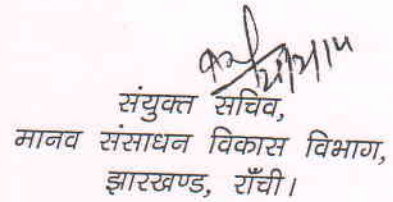 संयुक्त सचिव,
मानव संसाधन विकास विभाग,
झारखण्ड, राँची।